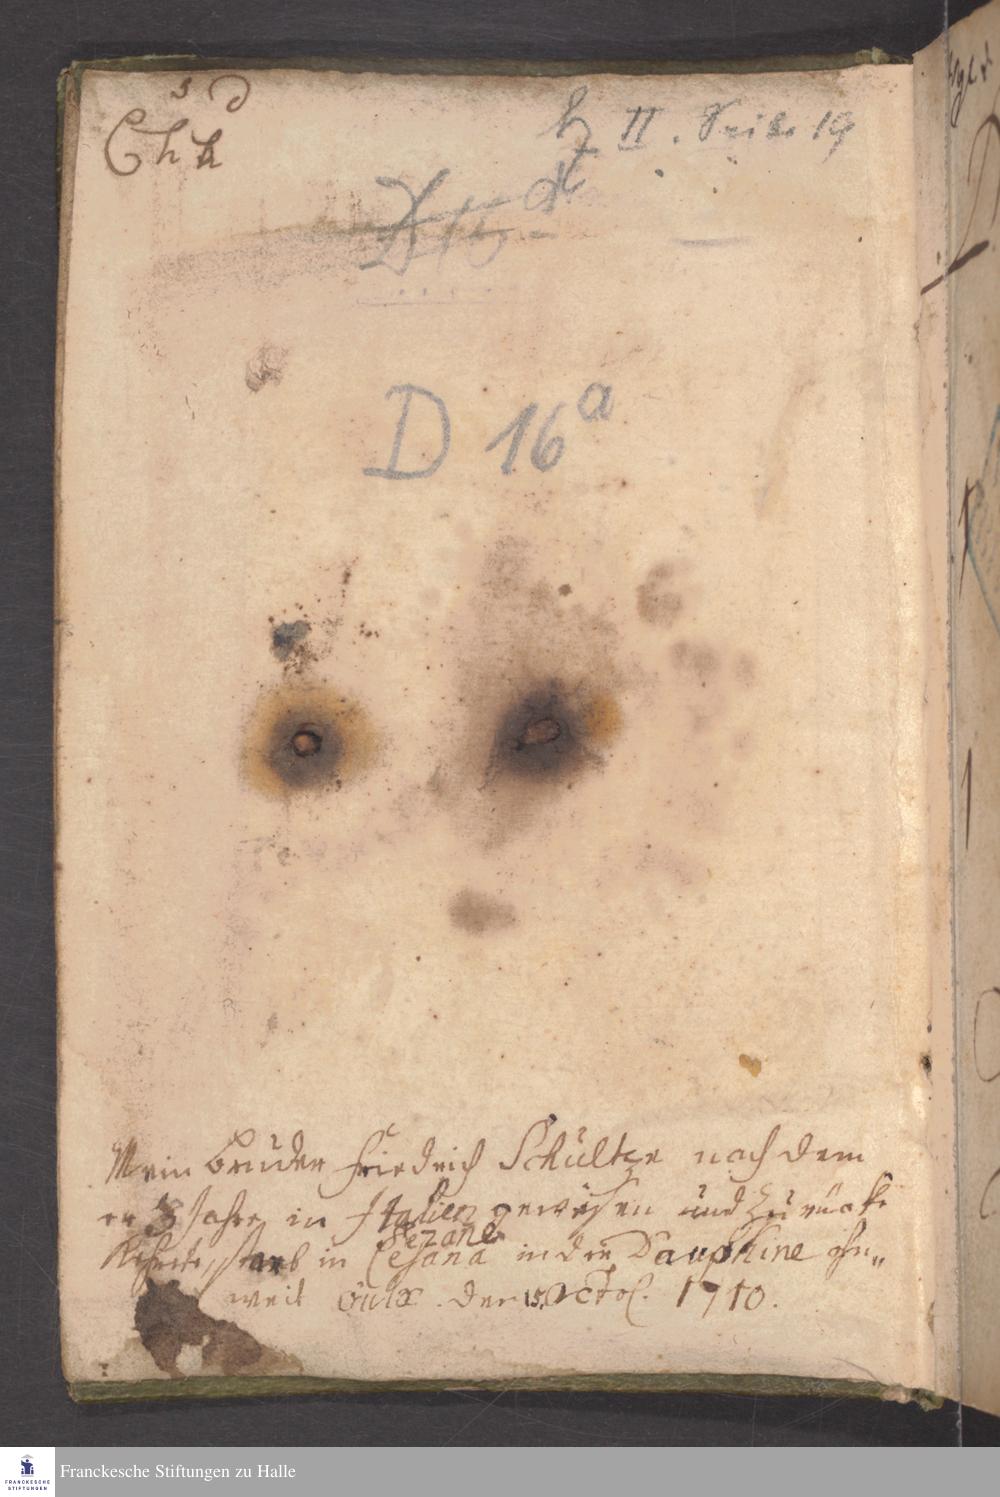 s d
C h h
II. Seite 19
D 16
D 16 a
Mein Bruder Friedrich Schültze nach dem
er 3 Jahre in Italien gewesen und zurücke
Sezane
Kehrte, starb in Cesana in der Dauphine ohn„
weit Oulx. den 15. Octob. 1710.
FRANCKESCHE
STIFTUNGEN
Franckesche Stiftungen zu Halle